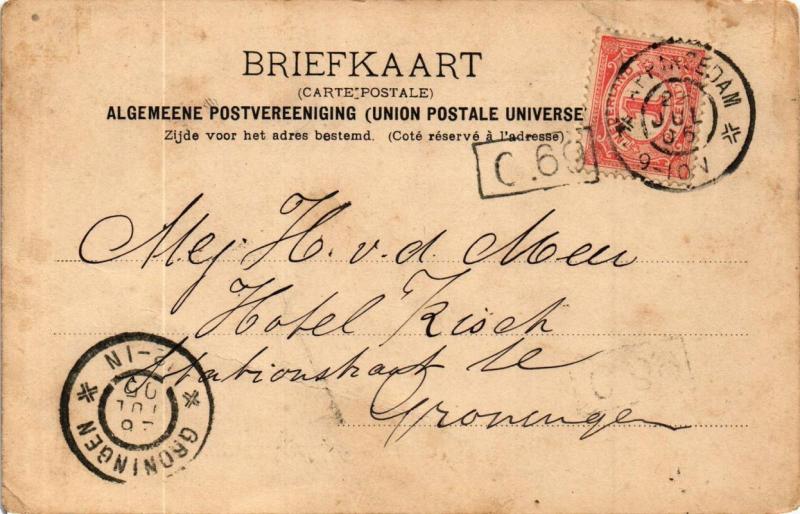 BRIEFKAART
(CARTE POSTALE)
ALGEMEENE POSTVEREENIGING (UNION POSTALE UNIVERSE
Zijde voor het adres bestemd. (Coté réservé à l'adresse)
NEDERLAND
JUL
C.69
Mej. H. v. d. Meer
Hotel Kisch
Stationstraat te
Groningen
GRONINGEN